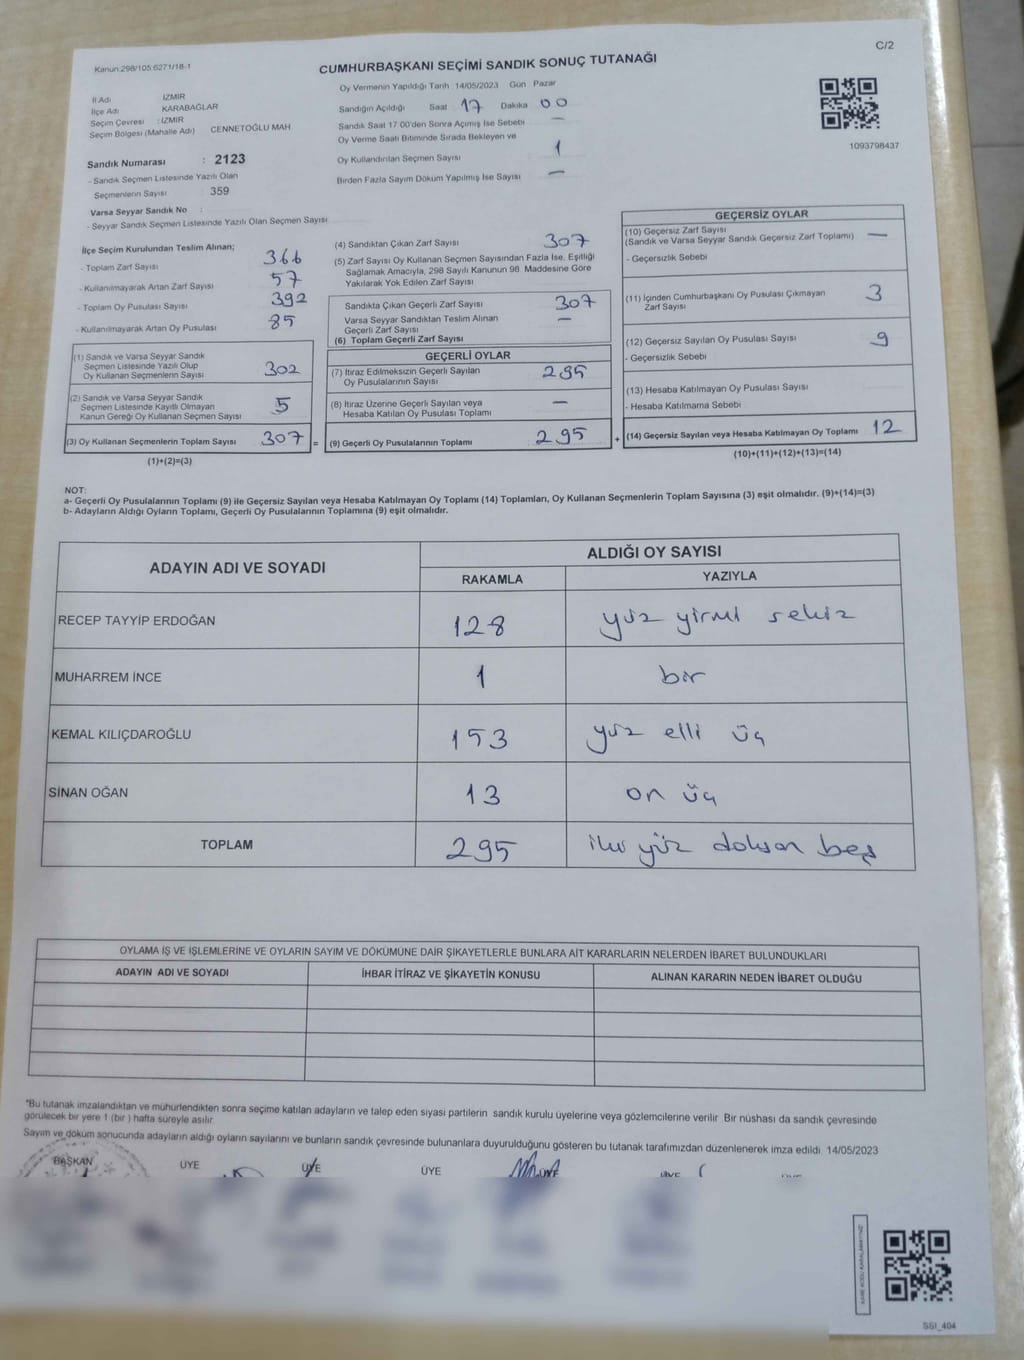 C/2
Kanun:298/105:6271/18-1
CUMHURBAŞKANI SEÇİMİ SANDIK SONUÇ TUTANAĞI
Oy Vermenin Yapıldığı Tarih 14/05/2023 Gün Pazar
İl Adı İZMİR
İlçe Adı KARABAĞLAR
Seçim Çevresi : İZMİR
Seçim Bölgesi (Mahalle Adı) CENNETOĞLU MAH
Sandığın Açıldığı Saat 17 Dakika 00
Sandık Saat 17:00'den Sonra Açılmış İse Sebebi —
Oy Verme Saati Bitiminde Sırada Bekleyen ve
Oy Kullandırılan Seçmen Sayısı 1
Birden Fazla Sayım Döküm Yapılmış İse Sayısı —
1093798437
Sandık Numarası : 2123
- Sandık Seçmen Listesinde Yazılı Olan
Seçmenlerin Sayısı 359
Varsa Seyyar Sandık No :
- Seyyar Sandık Seçmen Listesinde Yazılı Olan Seçmen Sayısı
İlçe Seçim Kurulundan Teslim Alınan;
- Toplam Zarf Sayısı 366
- Kullanılmayarak Artan Zarf Sayısı 57
- Toplam Oy Pusulası Sayısı 392
- Kullanılmayarak Artan Oy Pusulası 85
(1) Sandık ve Varsa Seyyar Sandık
Seçmen Listesinde Yazılı Olup
Oy Kullanan Seçmenlerin Sayısı 302
(2) Sandık ve Varsa Seyyar Sandık
Seçmen Listesinde Kayıtlı Olmayan
Kanun Gereği Oy Kullanan Seçmen Sayısı 5
(3) Oy Kullanan Seçmenlerin Toplam Sayısı 307 =
(1)+(2)=(3)
(4) Sandıktan Çıkan Zarf Sayısı 307
(5) Zarf Sayısı Oy Kullanan Seçmen Sayısından Fazla İse, Eşitliği
Sağlamak Amacıyla, 298 Sayılı Kanunun 98. Maddesine Göre
Yakılarak Yok Edilen Zarf Sayısı
Sandıkta Çıkan Geçerli Zarf Sayısı 307
Varsa Seyyar Sandıktan Teslim Alınan
Geçerli Zarf Sayısı —
(6) Toplam Geçerli Zarf Sayısı
GEÇERLİ OYLAR
(7) İtiraz Edilmeksizin Geçerli Sayılan
Oy Pusulalarının Sayısı 295
(8) İtiraz Üzerine Geçerli Sayılan veya
Hesaba Katılan Oy Pusulası Toplamı —
(9) Geçerli Oy Pusulalarının Toplamı 295 +
GEÇERSİZ OYLAR
(10) Geçersiz Zarf Sayısı
(Sandık ve Varsa Seyyar Sandık Geçersiz Zarf Toplamı) —
- Geçersizlik Sebebi
(11) İçinden Cumhurbaşkanı Oy Pusulası Çıkmayan
Zarf Sayısı 3
(12) Geçersiz Sayılan Oy Pusulası Sayısı 9
- Geçersizlik Sebebi
(13) Hesaba Katılmayan Oy Pusulası Sayısı
- Hesaba Katılmama Sebebi
(14) Geçersiz Sayılan veya Hesaba Katılmayan Oy Toplamı 12
(10)+(11)+(12)+(13)=(14)
NOT:
a- Geçerli Oy Pusulalarının Toplamı (9) ile Geçersiz Sayılan veya Hesaba Katılmayan Oy Toplamı (14) Toplamları, Oy Kullanan Seçmenlerin Toplam Sayısına (3) eşit olmalıdır. (9)+(14)=(3)
b- Adayların Aldığı Oyların Toplamı, Geçerli Oy Pusulalarının Toplamına (9) eşit olmalıdır.
ADAYIN ADI VE SOYADI ALDIĞI OY SAYISI
RAKAMLA YAZIYLA
RECEP TAYYİP ERDOĞAN 128 yüz yirmi sekiz
MUHARREM İNCE 1 bir
KEMAL KILIÇDAROĞLU 153 yüz elli üç
SİNAN OĞAN 13 on üç
TOPLAM 295 iki yüz doksan beş
OYLAMA İŞ VE İŞLEMLERİNE VE OYLARIN SAYIM VE DÖKÜMÜNE DAİR ŞİKAYETLERLE BUNLARA AİT KARARLARIN NELERDEN İBARET BULUNDUKLARI
ADAYIN ADI VE SOYADI İHBAR İTİRAZ VE ŞİKAYETİN KONUSU ALINAN KARARIN NEDEN İBARET OLDUĞU
*Bu tutanak imzalandıktan ve mühürlendikten sonra seçime katılan adayların ve talep eden siyasi partilerin sandık kurulu üyelerine veya gözlemcilerine verilir. Bir nüshası da sandık çevresinde
görülecek bir yere 1 (bir ) hafta süreyle asılır.
Sayım ve döküm sonucunda adayların aldığı oyların sayılarını ve bunların sandık çevresinde bulunanlara duyurulduğunu gösteren bu tutanak tarafımızdan düzenlenerek imza edildi. 14/05/2023
BAŞKAN ÜYE ÜYE ÜYE ÜYE ÜYE
KARE KODU KARALAMAYINIZ!
SSI_404